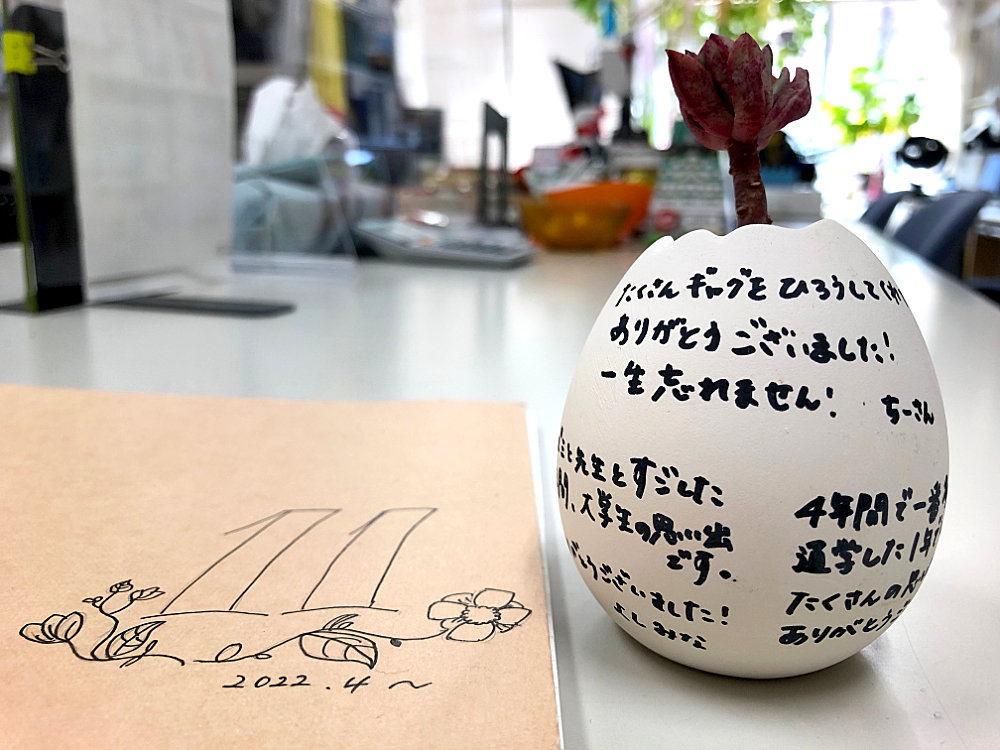 11
2022.4~
たくさんギャグをひろうしてくれ
ありがとうございました!
一生忘れません!
ちーさん
こと先生とすごした
間、大学生の思い出
です。
とうございました!
よしみな
4年間で一番
通学した1年
たくさんの思
ありがとう